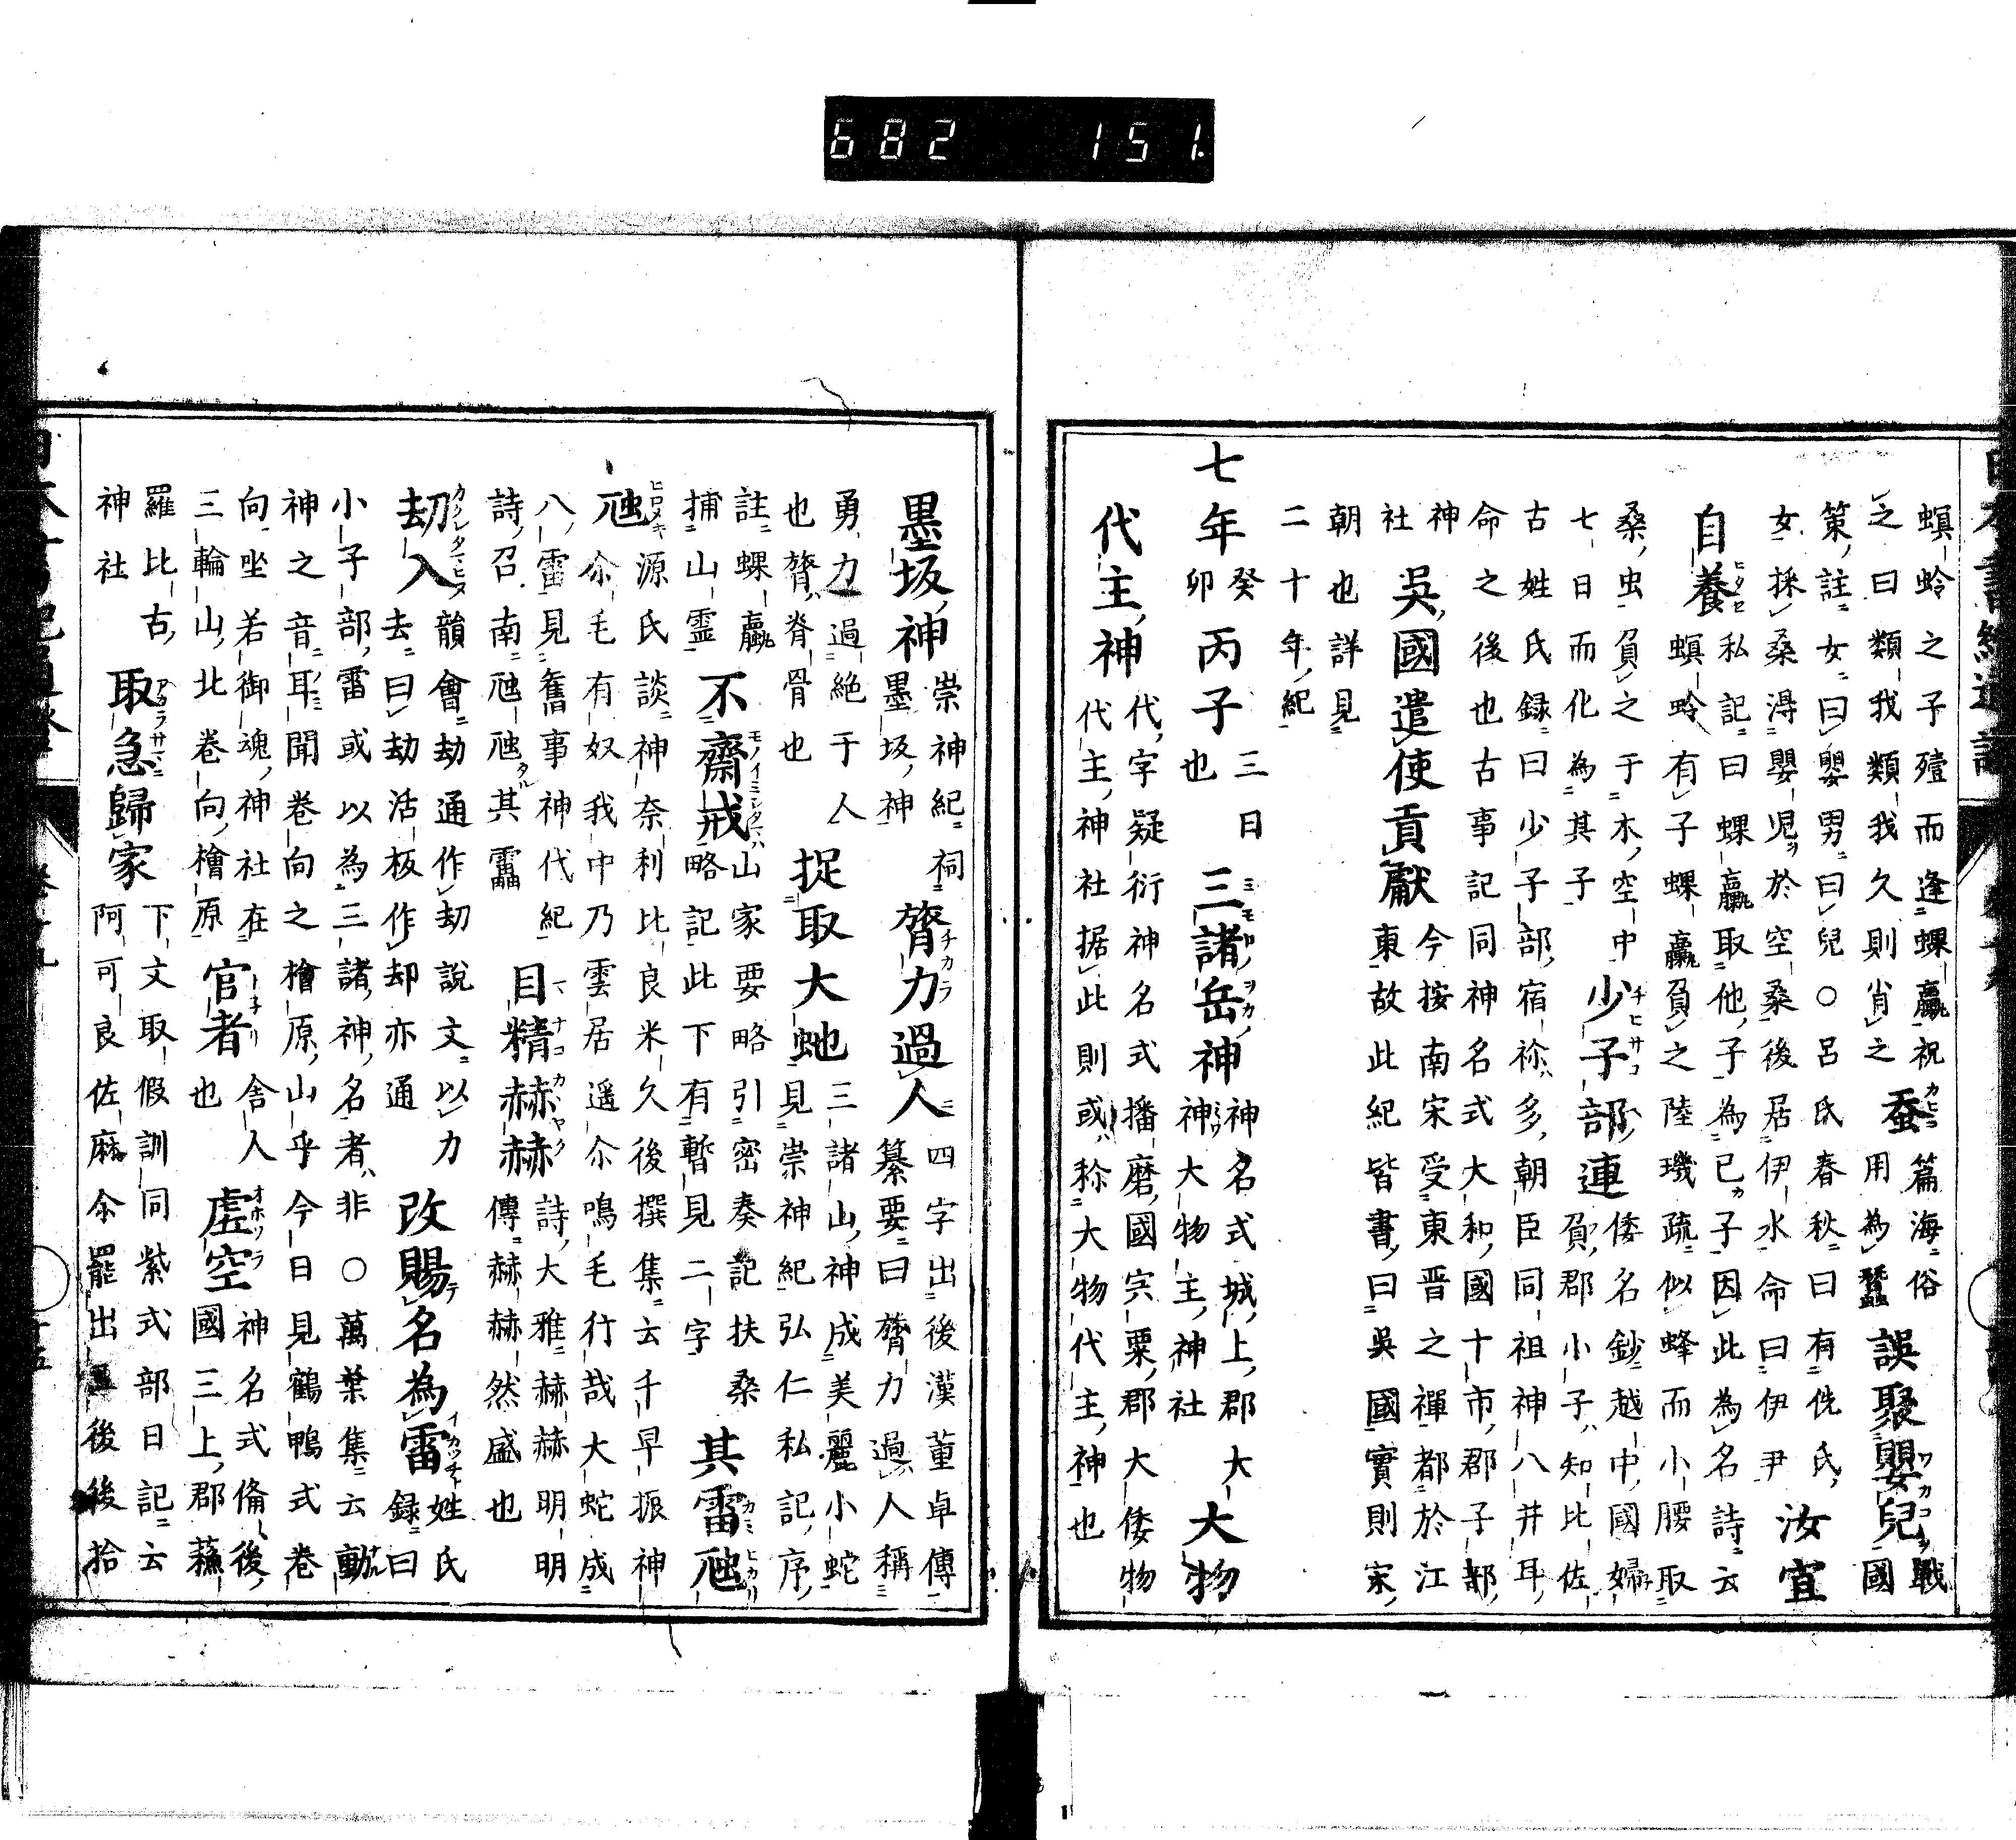 螟蛉之子殪而逢蜾蠃祝
之曰類我類我久則肖之
蚕
篇海俗
用為蠶
誤聚嬰兒
戰
國
策註女曰嬰男曰兒○呂氏春秋曰有侁氏
女採桑淂嬰児於空桑後居伊水命曰伊尹
汝宜
自養
私記曰蜾蠃取他子為己子因此為名詩云
螟蛉有子蜾蠃負之陸璣疏似蜂而小腰取
桑虫負之于木空中
七日而化為其子
少子部連
倭名鈔越中國婦
負郡小子知比佐
古姓氏録曰少子部宿祢多朝臣同祖神八井耳
命之後也古事記同神名式大和國十市郡子部
神
社
吳國遣使貢獻
今按南宋受東晋之禪都於江
東故此紀皆書曰吳國實則宋
朝也詳見
二十年紀
七年
癸
卯
丙子
三日
也
三諸岳神
神名式城上郡大
神大物主神社
大物
代主神
代字疑衍神名式播磨國宍粟郡大倭物
代主神社据此則或称大物代主神也
墨坂神
崇神紀祠
墨坂神
膂力過人
四字出後漢董卓傳
纂要曰膂力過人稱
勇力過絶于人
也膂脊骨也
捉取大虵
三諸山神成美麗小蛇
見崇神紀弘仁私記序
註蜾蠃
捕山霊
不齋戒
山家要略引密奏記扶桑
略記此下有暫見二字
其雷虺
虺
源氏談神奈利比良米久後撰集云千早振神
尒毛有奴我中乃雲居遥尒鳴毛行哉大蛇成
八雷見舊事神代紀
詩召南虺虺其靁
目精赫赫
詩大雅赫赫明明
傳赫赫然盛也
劫入
韻會劫通作刧說文以力
去曰劫活板作却亦通
改賜名為雷
姓氏
録曰
小子部雷或以為三諸神名者非○萬葉集云動
神之音耳聞巻向之檜原山乎今日見鶴鴨式巻
向坐若御魂神社在
三輪山北巻向檜原
官者
舎人
也
虗空
神名式脩後
國三上郡蘓
羅比古
神社
取急歸家
下文取假訓同紫式部日記云
阿可良佐麻尒罷出 後後拾